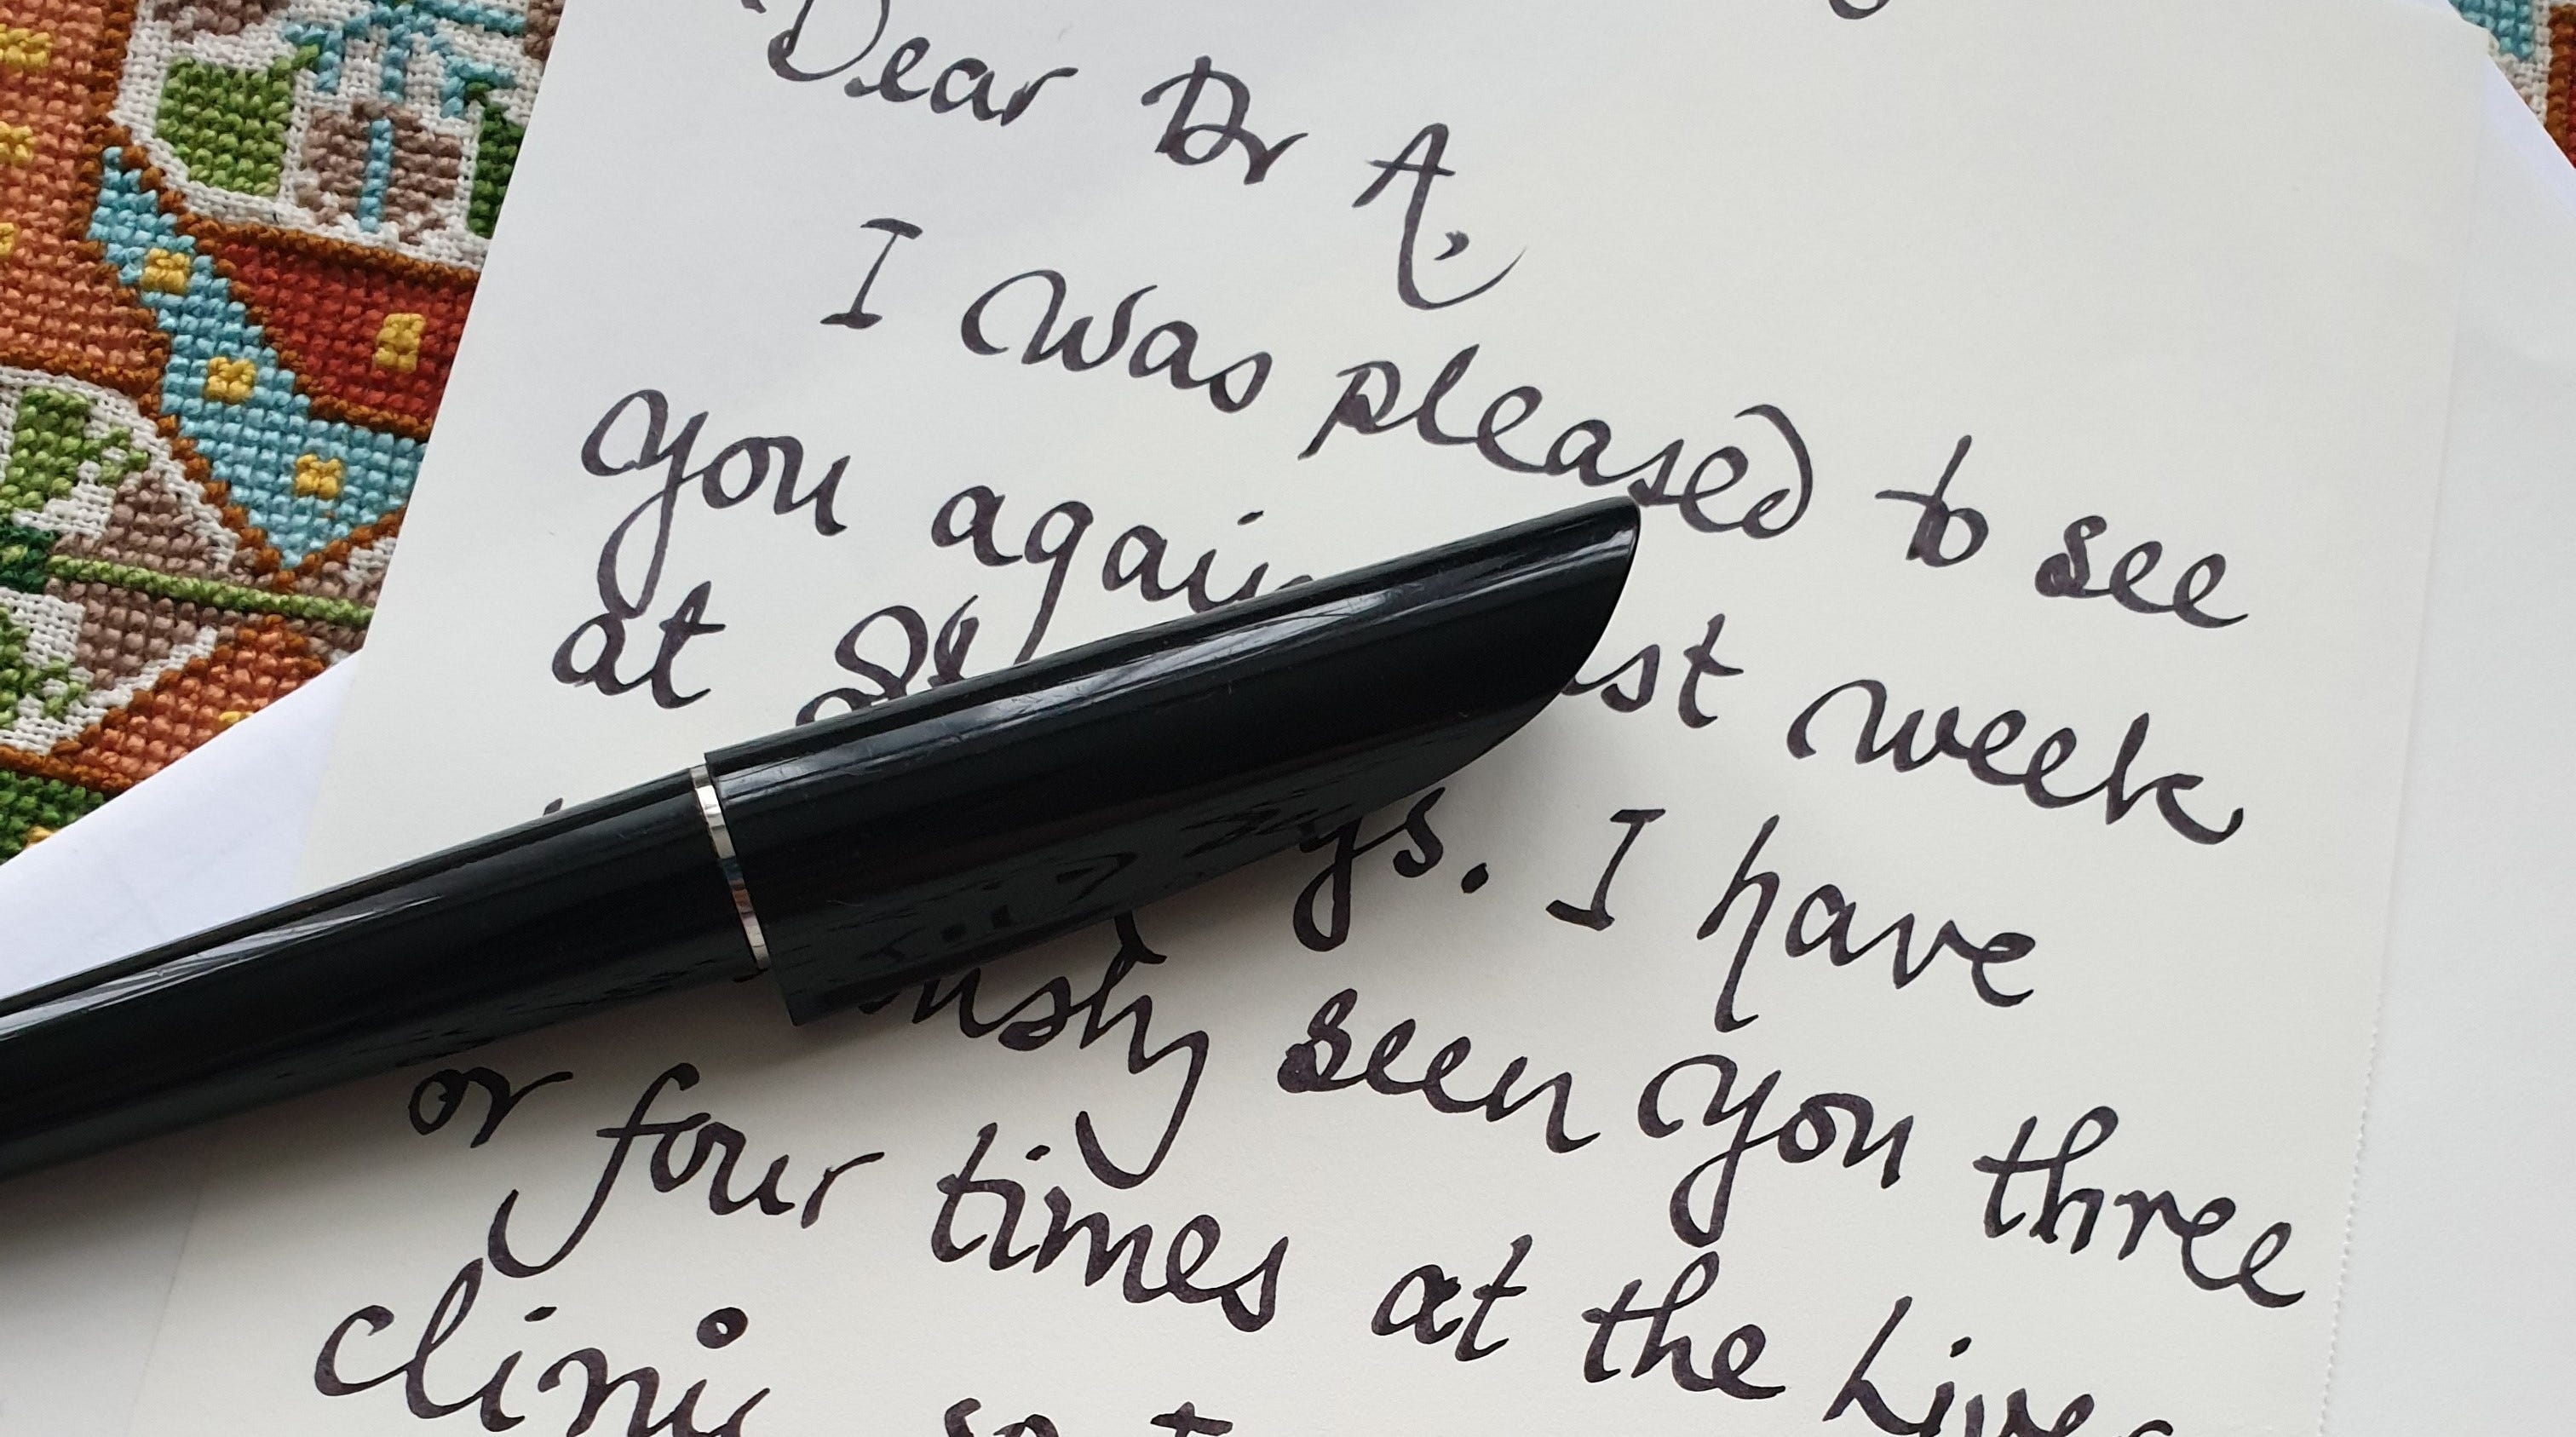 Dear Dr A,
I was pleased to see
you again
at week
I have
seen you three
or four times at the
clinic